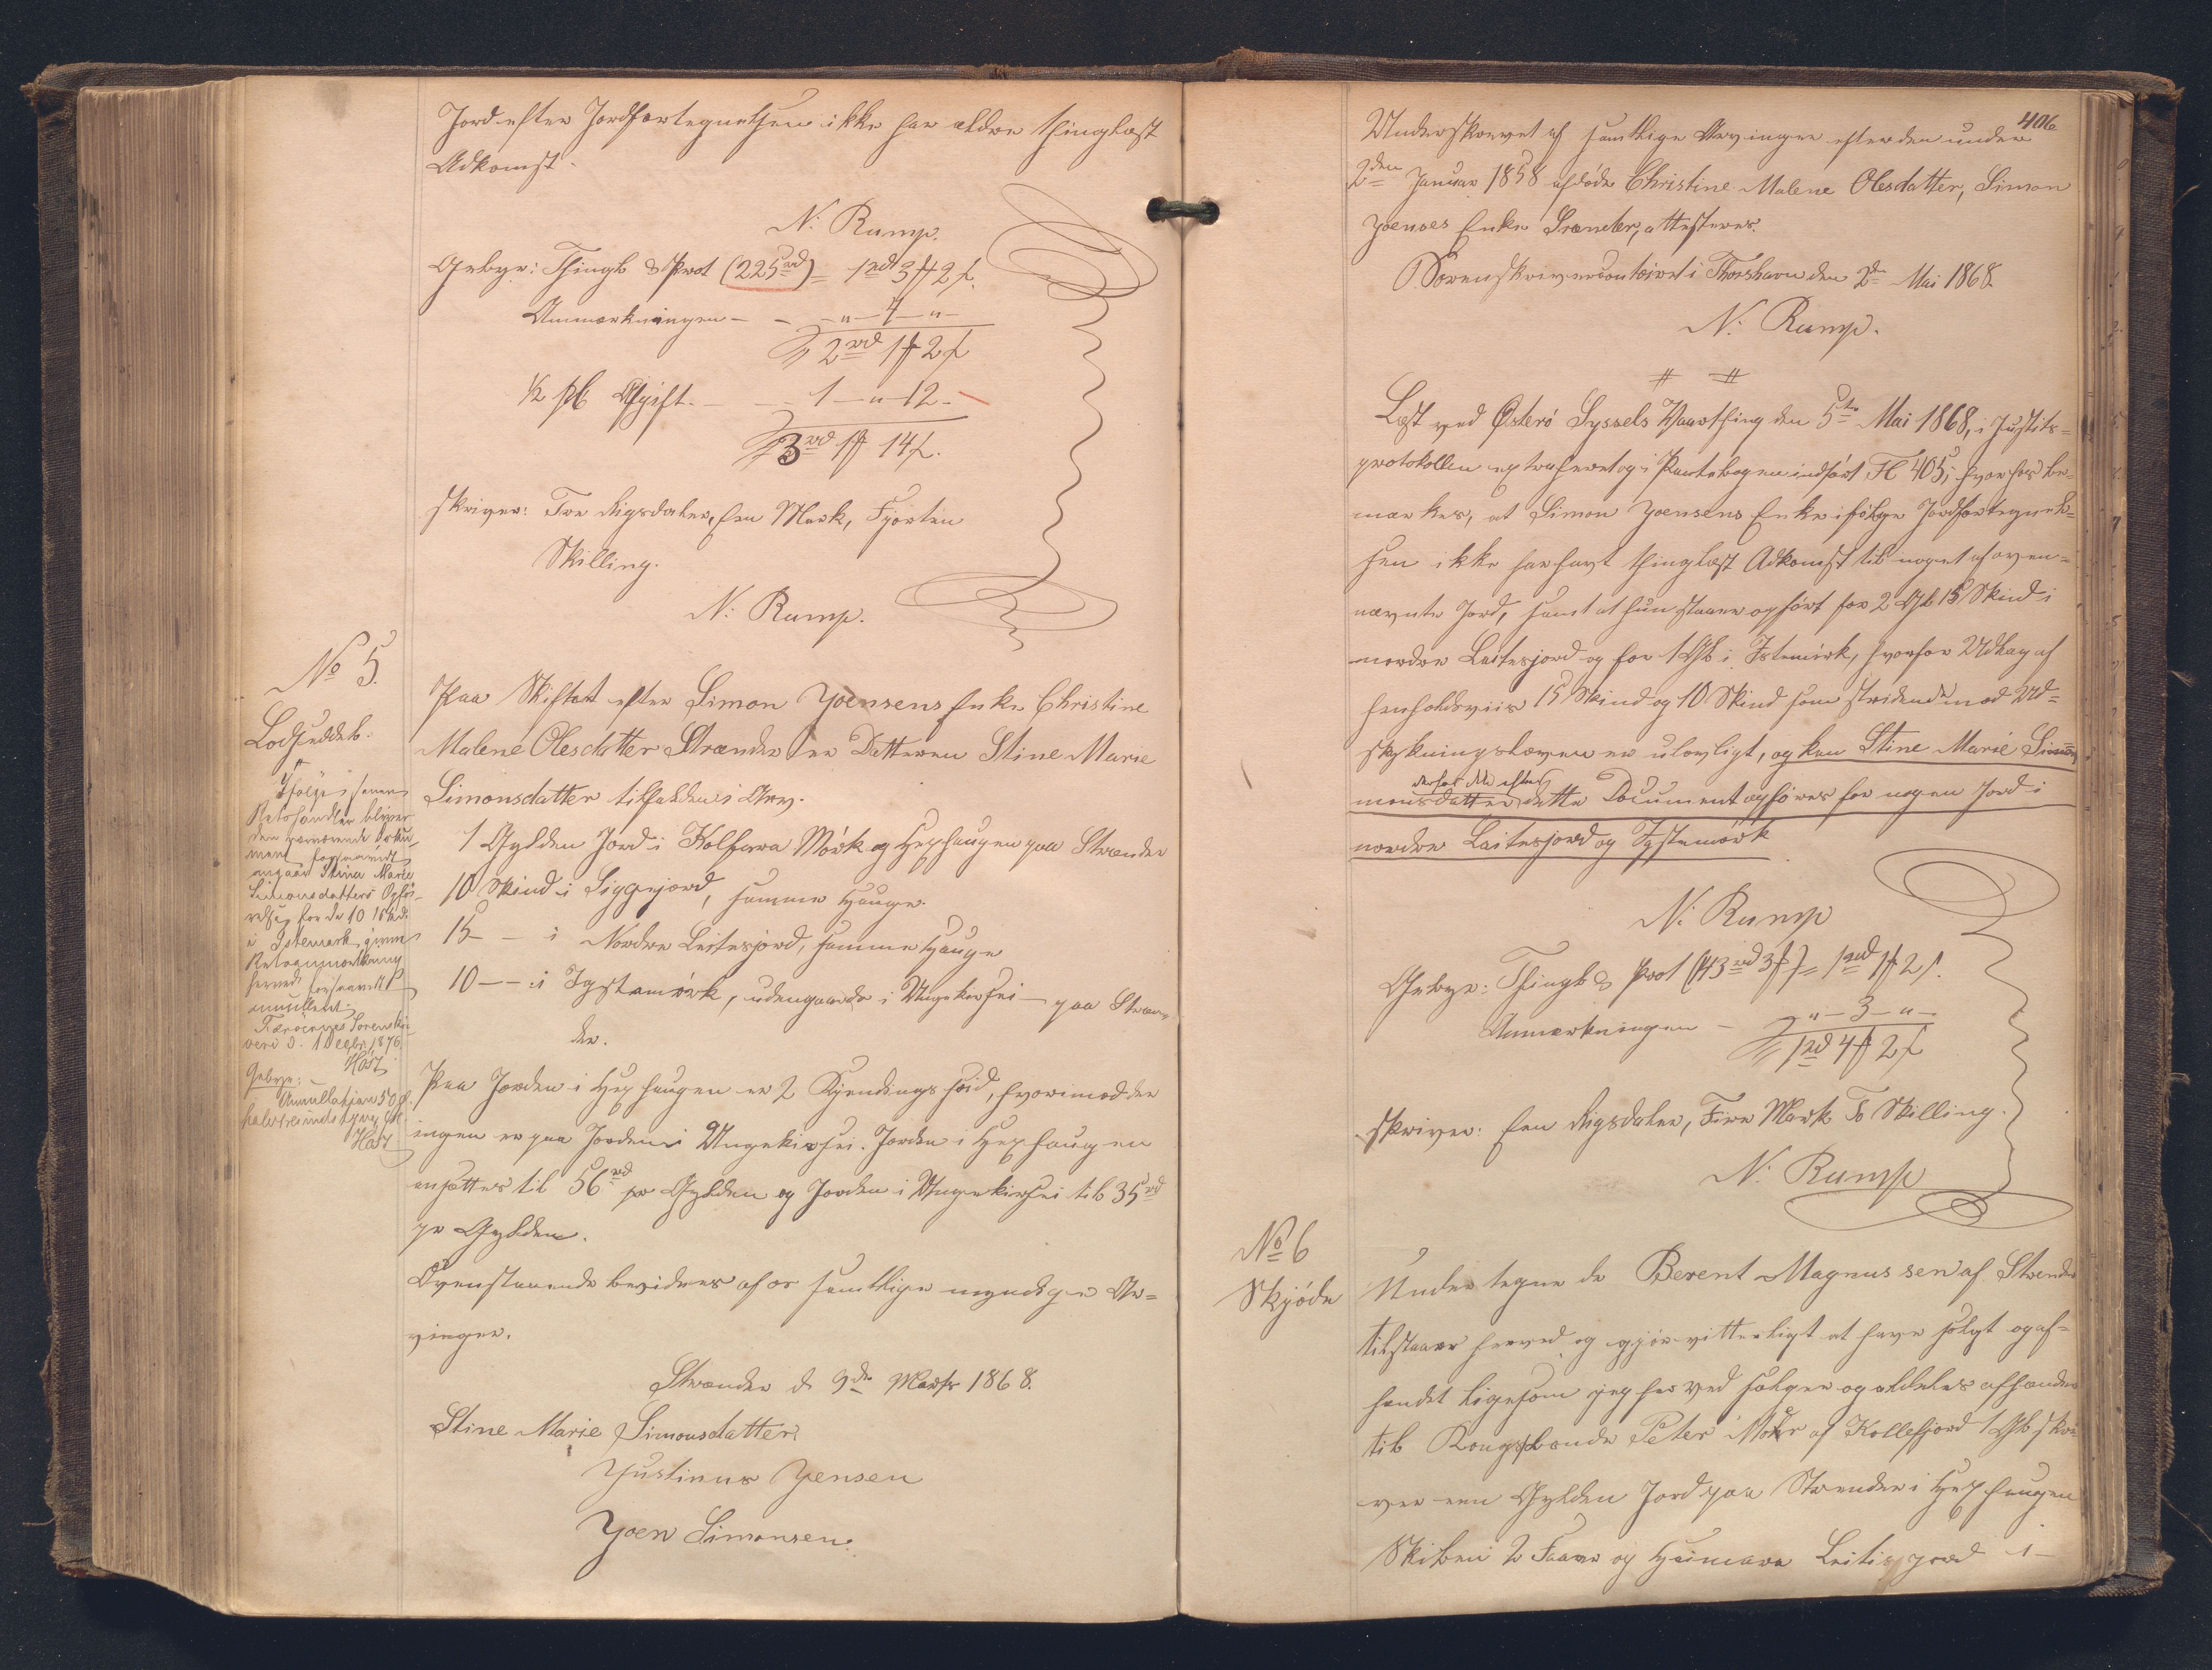 Jord efter Jordfortegnelsen ikke har ældre thinglæst
Adkomst.
N. Rump.
Gebyr: Thingl & Prot (225rd) = 1rd 3 ₻ 2 ſ.
Anmærkningen - - - " - 4 - " -
2rd 1 ₻ 2 ſ
½ pC Afgift. - - - 1 - " - 12 -
3rd 1 ₻ 14 ſ.
skriver: Tre Rigsdaler, Een Mark, Fjorten
Skilling.
N: Rump.
No 5.
Lodseddel.
Ifølge senere
Retshandler bliver
den nærværende Doku-
ment forsaavidt
angaar Stine Marie
Simonsdatters Opfø-
relse for de 10 Skd.
i Istemørk
Retsanmærkning
herved forsaavidt
annulleret.
Færøernes Sorenskri-
veri d. 1 1876.
Høst
Gebyr:
Annullation 50
Høst
Paa Skiftet efter Simon Joensens Enke Christine
Malene Olesdatter Strænder er Datteren Stine Marie
Simonsdatter tilfalden i Arv.
1 Gylden Jord i Kolfara Mørk og Hyphaugen paa Strænder
10 Skind i Siggejord, samme Hauge.
15 - - i Nordre Leitesjord, samme Hauge
10 - - i Iystamørk, udengaards i Ungekirsei - paa Stræn-
der.
Paa Jorden i Hyphaugen er 2 Kyrndings hørd, hvorimod der
ingen er paa Jorden i Ungekirsei. Jorden i Hyphaugen
ansættes til 56rd pr Gylden og Jorden i Ungekirsei til 35rd
pr Gylden.
Ovenstaaende bevidnes af os samtlige myndige Ar-
vinger.
Strænder d. 9de Marts 1868.
Stine Marie Simonsdatter.
Justinus Jensen
Joen Simonsen.
406
Underskrevet af samtlige Arvinger efter den under
2den Januar 1858 afdøde Christine Malene Olesdatter, Simon
Joenses Enke Strænder, attesteres.
Sorenskrivercontoiret i Thorshavn den 2de Mai 1868.
N: Rump.
Læst ved Østerø Syssels Vaarthing den 5te Mai 1868, i Justits-
protokollen extraheret og i Pantebogen indført Fl 405, hvorhos be-
mærkes, at Simon Joensens Enke ifølge Jordfortegnel-
sen ikke har havt thinglæst Adkomst til noget af oven-
nævnte Jord, samt at hun staaer opført for 2 Gl 15 Skind i
nordre Leitesjord og for 1 Gl i Istemørk, hvorfor Udlæg af
henholdsviis 15 Skind og 10 Skind som stridende mod Ud-
stykningsloven er ulovligt, og kan Stine Marie Si-
monsdatter derfor ikke efter dette Document opføres for nogen Jord i
nordre Leitesjord og Iystemørk
N: Rump
Gebyr: Thingl & Prot (43rd 3 ₻) = 1rd 1 ₻ 2 ſ.
Anmærkningen - " - 3 - " -
1rd 4 ₻ 2 ſ
skriver: Een Rigsdaler, Fire Mark To Skilling.
N: Rump
No 6
Skjøde
Undertegnede Berent Magnussen af Strænder
tilstaaer herved og gjør vitterligt at have solgt og af-
hændet ligesom jeg herved sælger og aldeles afhænder
til Kongsbonde Peter Mohr af Kollefjord 1 Gl skri-
ver een Gylden Jord paa Strænder i Hyphaugen
Skiben 2 Faare og Heimara Leitisjord i -